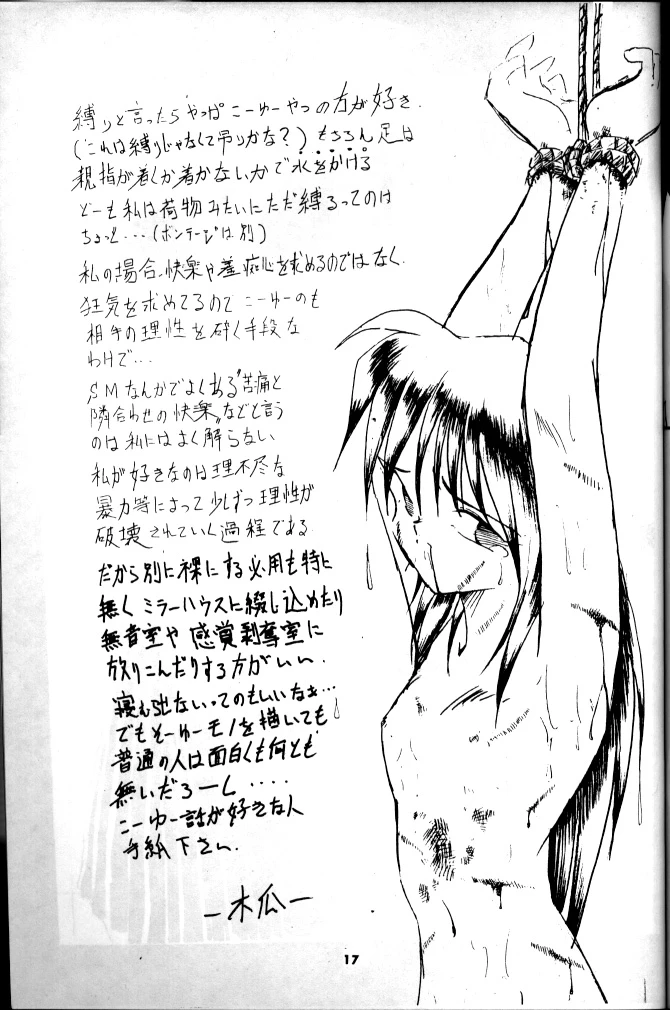 縛りと言ったらやっぱこーゆーやつの方が好き.
(これは縛りじゃなくて吊りかな？)もちろん足は
親指が着くか着かないかで水をかける
どーも私は荷物みたいにただ縛るってのは
ちょっと…(ボンテージは別)
私の場合、快楽や羞恥心を求めるのではなく、
狂気を求めてるのでこーゆーのも
相手の理性を砕く手段な
わけで…
SMなんかでよくある"苦痛と
隣合わせの快楽"などと言う
のは私にはよく解らない
私が好きなのは理不尽な
暴力等によって少しずつ理性が
破壊されていく過程である
だから別に裸にする必用も特に
無くミラーハウスに綴じ込めたり
無音室や感覚剥奪室に
放りこんだりする方がいい.
寝むらせないってのもいいなぁ…
でもそーゆーモノを描いても
普通の人は面白くも何とも
無いだろーし‥‥
こーゆー話が好きな人
手紙下さい.
ー木瓜ー
17